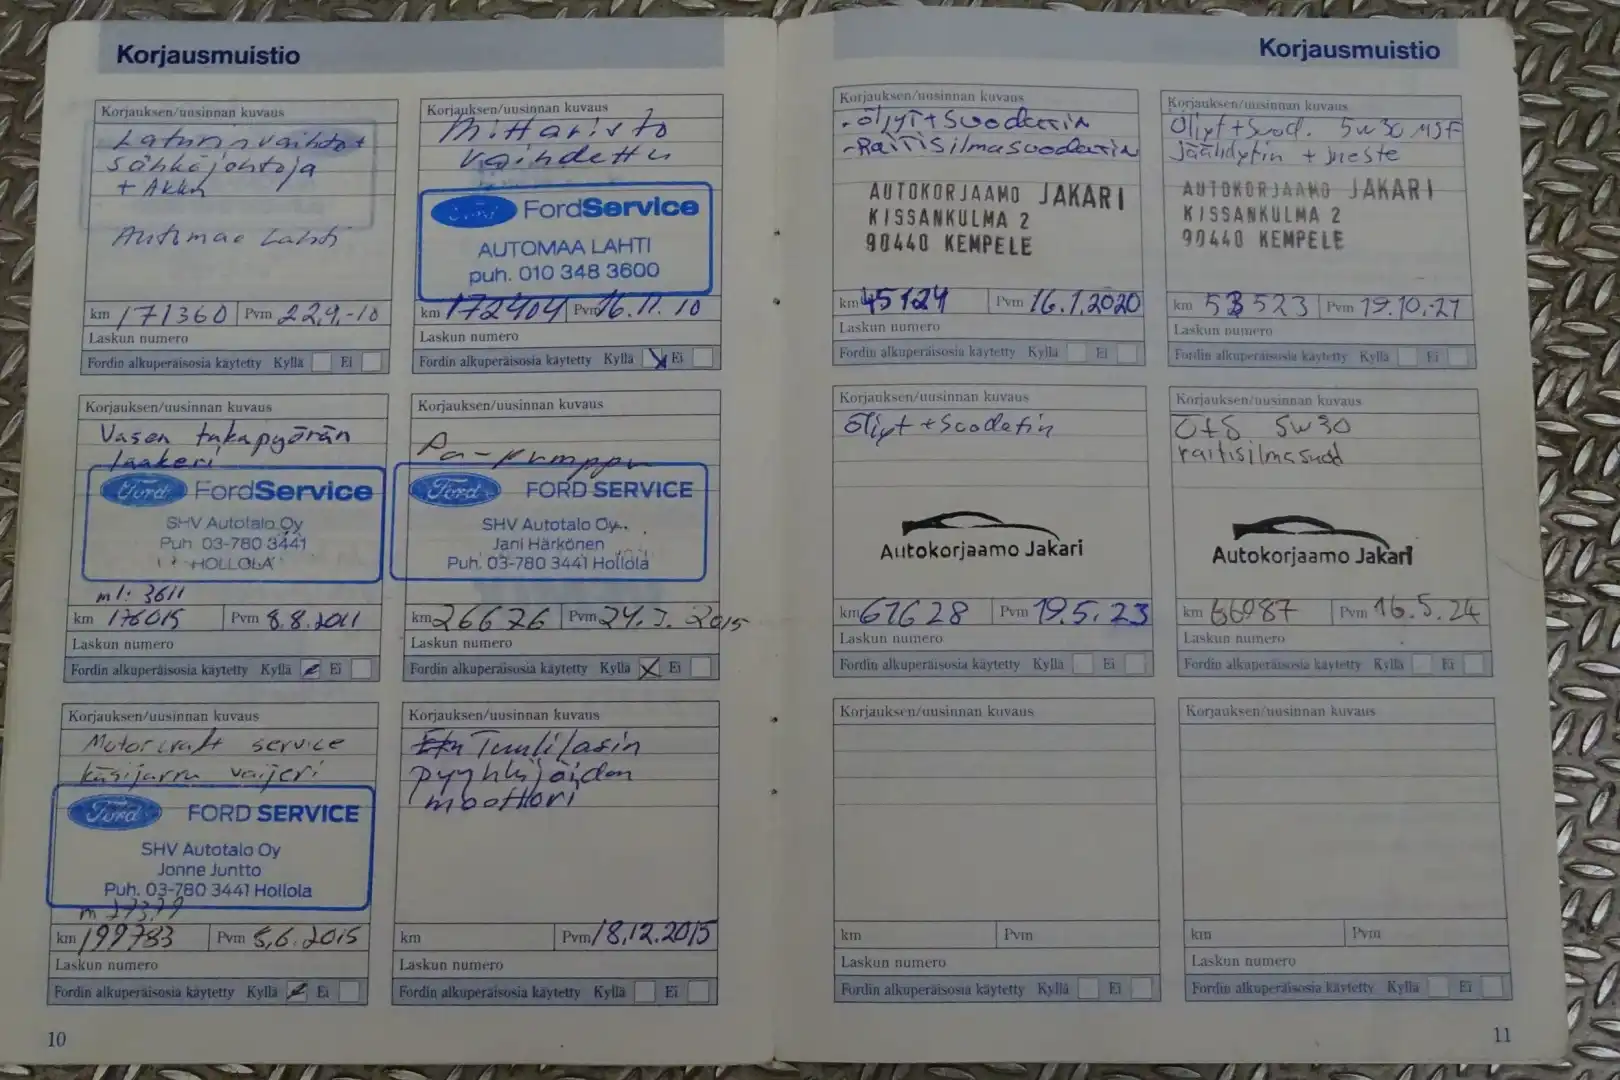 Korjausmuistio
Korjauksen/uusinnan kuvaus
Laturin vaihto +
sähköjohtoja
+ Akku
Automaa Lahti
km 171360 Pvm 22.9.-10
Laskun numero
Fordin alkuperäisosia käytetty Kyllä Ei
Korjauksen/uusinnan kuvaus
Mittaristo
vaihdettu
Ford FordService
AUTOMAA LAHTI
puh. 010 348 3600
km 172404 Pvm 16.11.10
Laskun numero
Fordin alkuperäisosia käytetty Kyllä Ei
Korjauksen/uusinnan kuvaus
Vasen takapyörän
laakeri
Ford FordService
SHV Autotalo Oy
Puh. 03-780 3441
HOLLOLA
ml: 3611
km 176015 Pvm 8.8.2011
Laskun numero
Fordin alkuperäisosia käytetty Kyllä Ei
Korjauksen/uusinnan kuvaus
Pa-pumppu
Ford FORD SERVICE
SHV Autotalo Oy
Jani Härkönen
Puh. 03-780 3441 Hollola
km 26626 Pvm 2015
Laskun numero
Fordin alkuperäisosia käytetty Kyllä X Ei
Korjauksen/uusinnan kuvaus
Motorcraft service
käsijarru vaijeri
Ford FORD SERVICE
SHV Autotalo Oy
Jonne Juntto
Puh. 03-780 3441 Hollola
km 199783 Pvm 5.6.2015
Laskun numero
Fordin alkuperäisosia käytetty Kyllä Ei
Korjauksen/uusinnan kuvaus
Tuulilasin
pyyhkijöiden
moottori
km Pvm 18.12.2015
Laskun numero
Fordin alkuperäisosia käytetty Kyllä Ei
10
Korjausmuistio
Korjauksen/uusinnan kuvaus
-öljyt+Suodatin
-Raitisilmasuodatin
AUTOKORJAAMO JAKARI
KISSANKULMA 2
90440 KEMPELE
km 45124 Pvm 16.1.2020
Laskun numero
Fordin alkuperäisosia käytetty Kyllä Ei
Korjauksen/uusinnan kuvaus
Öljyt+Suod. 5w30 MSF
jäähdytin + neste
AUTOKORJAAMO JAKARI
KISSANKULMA 2
90440 KEMPELE
km 53523 Pvm 19.10.-21
Laskun numero
Fordin alkuperäisosia käytetty Kyllä Ei
Korjauksen/uusinnan kuvaus
Öljyt +Suodatin
Autokorjaamo Jakari
km 61628 Pvm 19.5.23
Laskun numero
Fordin alkuperäisosia käytetty Kyllä Ei
Korjauksen/uusinnan kuvaus
Ö+S 5w30
raitisilmasuod
Autokorjaamo Jakari
km 66987 Pvm 16.5.24
Laskun numero
Fordin alkuperäisosia käytetty Kyllä Ei
Korjauksen/uusinnan kuvaus
km Pvm
Laskun numero
Fordin alkuperäisosia käytetty Kyllä Ei
Korjauksen/uusinnan kuvaus
km Pvm
Laskun numero
Fordin alkuperäisosia käytetty Kyllä Ei
11